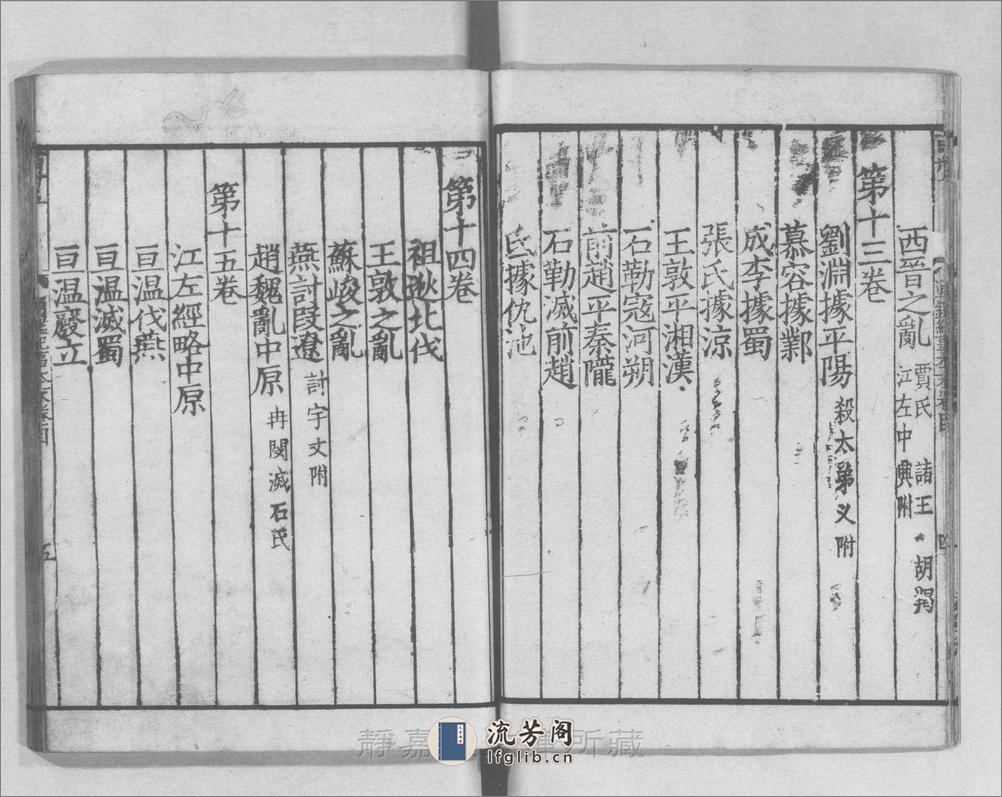 西晉之亂 賈氏 諸王 胡羯 江左中興附
第十三卷
劉淵據平陽 殺太弟乂附
慕容據鄴
成李據蜀
張氏據涼
王敦平湘漢
石勒寇河朔
前趙平秦隴
石勒滅前趙
氐據仇池
第十四卷
祖逖北伐
王敦之亂
蘇峻之亂
燕討段遼 討宇文附
趙魏亂中原 冉閔滅石氏
第十五卷
江左經略中原
亘温伐燕
亘温滅蜀
亘温廢立
靜嘉
所藏
流芳阁
lfglib.cn